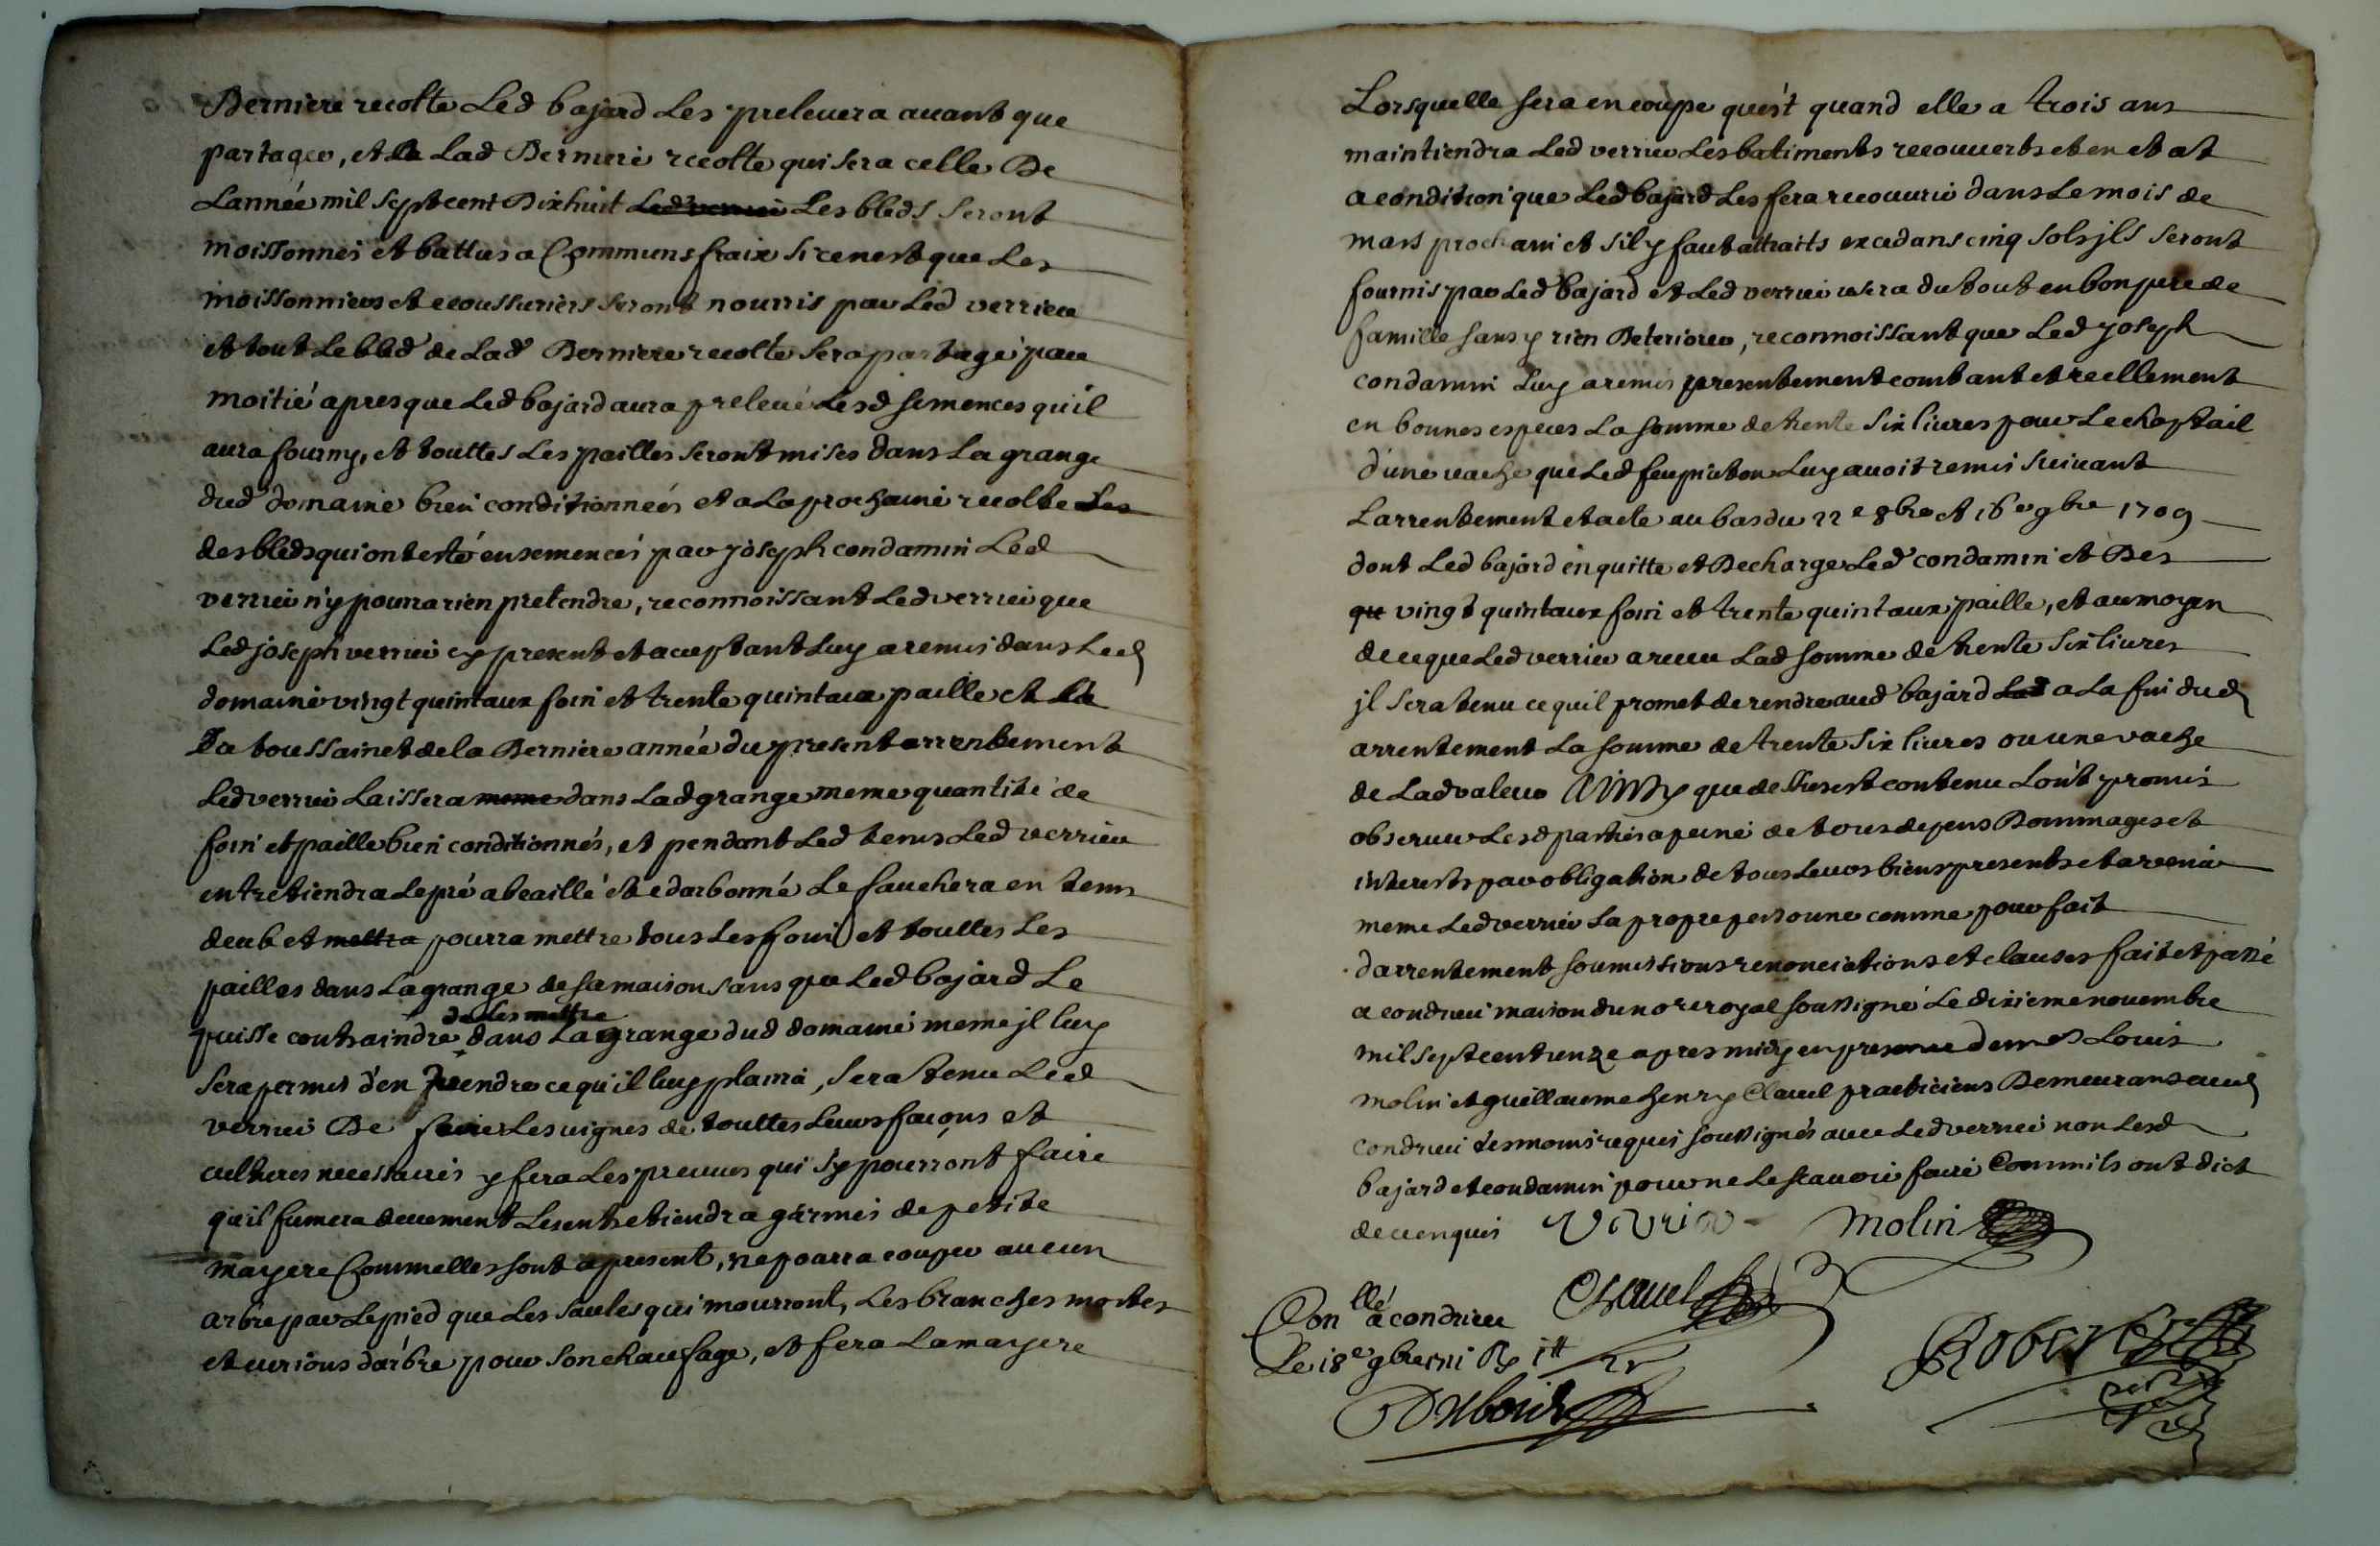 Derniere recolte Led bajard Les prelevera avant que
partager, et La Lad Derniere recolte qui sera celle De
Lannée mil sept cent Dixhuit Led verrier Les bleds seront
moissonnés et battus a Communs fraix si ce nest que Les
moissonniers et ecoussuriers seront nourris par Led verrieu
et tout Le bled de Lad Derniere recolte sera partagé par
moitié apres que Led bajard aura prelevé Lesd semences qu'il
aura fourny, et touttes Les pailles seront mises dans La grange
dud domaine bien conditionneés et a La prochaine recolte Les
des bleds qui ont esté ensemencés par joseph condamin Led
verrieu n'y pourra rien pretendre, reconnoissant Led verrieu que
Led joseph verrieu cy present et aceptant Luy a remis dans Led
domaine vingt quintaux foin et trente quintaux paille et La
La toussainct de la Derniere année du present arrentement
Led verrieu Laissera meme dans Lad grange meme quantité de
foin et paille bien conditionnés, et pendant Led tems Led verrieu
entretiendra Le pré abeaillé et edarbonné Le fauchera en tems
deub et mettra pourra mettre tous Les foins et touttes Les
pailles dans La grange de sa maison sans que Led bajard Le
de Les mettre
puisse contraindre dans La grange dud domaine meme jl luy
sera permis d'en prendre ce qu'il luy plaira, sera tenu Led
verrieu De faire Les vignes de touttes Leurs façons et
cultures necessaires y fera Les preuves qui s'y pourront faire
qu'il fumera deuement Les entretiendra garnies de petite
mayere Comm elles sont apresent, ne pourra couper aucun
arbre par Le pied que Les saules qui mourront, Les branches mortes
et curions d'arbre pour son chaufage, et fera La mayere
Lorsquelle sera en coupe qu'est quand elle a trois ans
maintiendra Led verrieu Les batiments recouverts et en etat
a condition que Led bajard Les fera recouvrir dans Le mois de
mars prochain et s'il y faut attraits excedans cinq sols jls seront
fournis par Led bajard et Led verrieu usera du tout en bon pere de
famille sans y rien Deteriorer, reconnoissant que Led joseph
condamin Luy a remis presentement comtant et reellement
en bonnes especes La somme de trente six livres pour Le cheptail
d'une vache que Led feu Luy avoit remis suivant
Larrentement et acte au bas du 22e 8bre et 16e 9bre 1709
dont Led bajard en quitte et Decharge Led condamin et Des
que vingt quintaux foin et trente quintaux paille, et au moyen
de ce que Led verrieu a receu Lad somme de trente six livres
jl sera tenu ce quil promet de rendre aud bajard Lad a La fin dud
arrentement La somme de trente six livres ou une vache
de Lad valeur Ainsy que dessus est contenu L'ont promis
observer Lesd parties a peine de tous depens Dommages et
interests par obligation de tous Leurs biens presents et avenir
meme Led verrieu La propre personne comme pour fait
darrentement soumissions renonciations et clauses fait et passé
a condrieu maison du nore royal soussigné Le dixieme novembre
mil sept cent unze apres midy en presence de Louis
molin et guillaume henry Clavel practiciens Demeurans aud
condrieu tesmoins requis soussignés avec Led verrieu non Lesd
bajard et condamin pour ne Le scavoir faire Comm ils ont dict
de ce enquis verrieu molin
Conllé a condrieu Clavel
Le 18e 9bre 1711 Rx
Dubois Robert